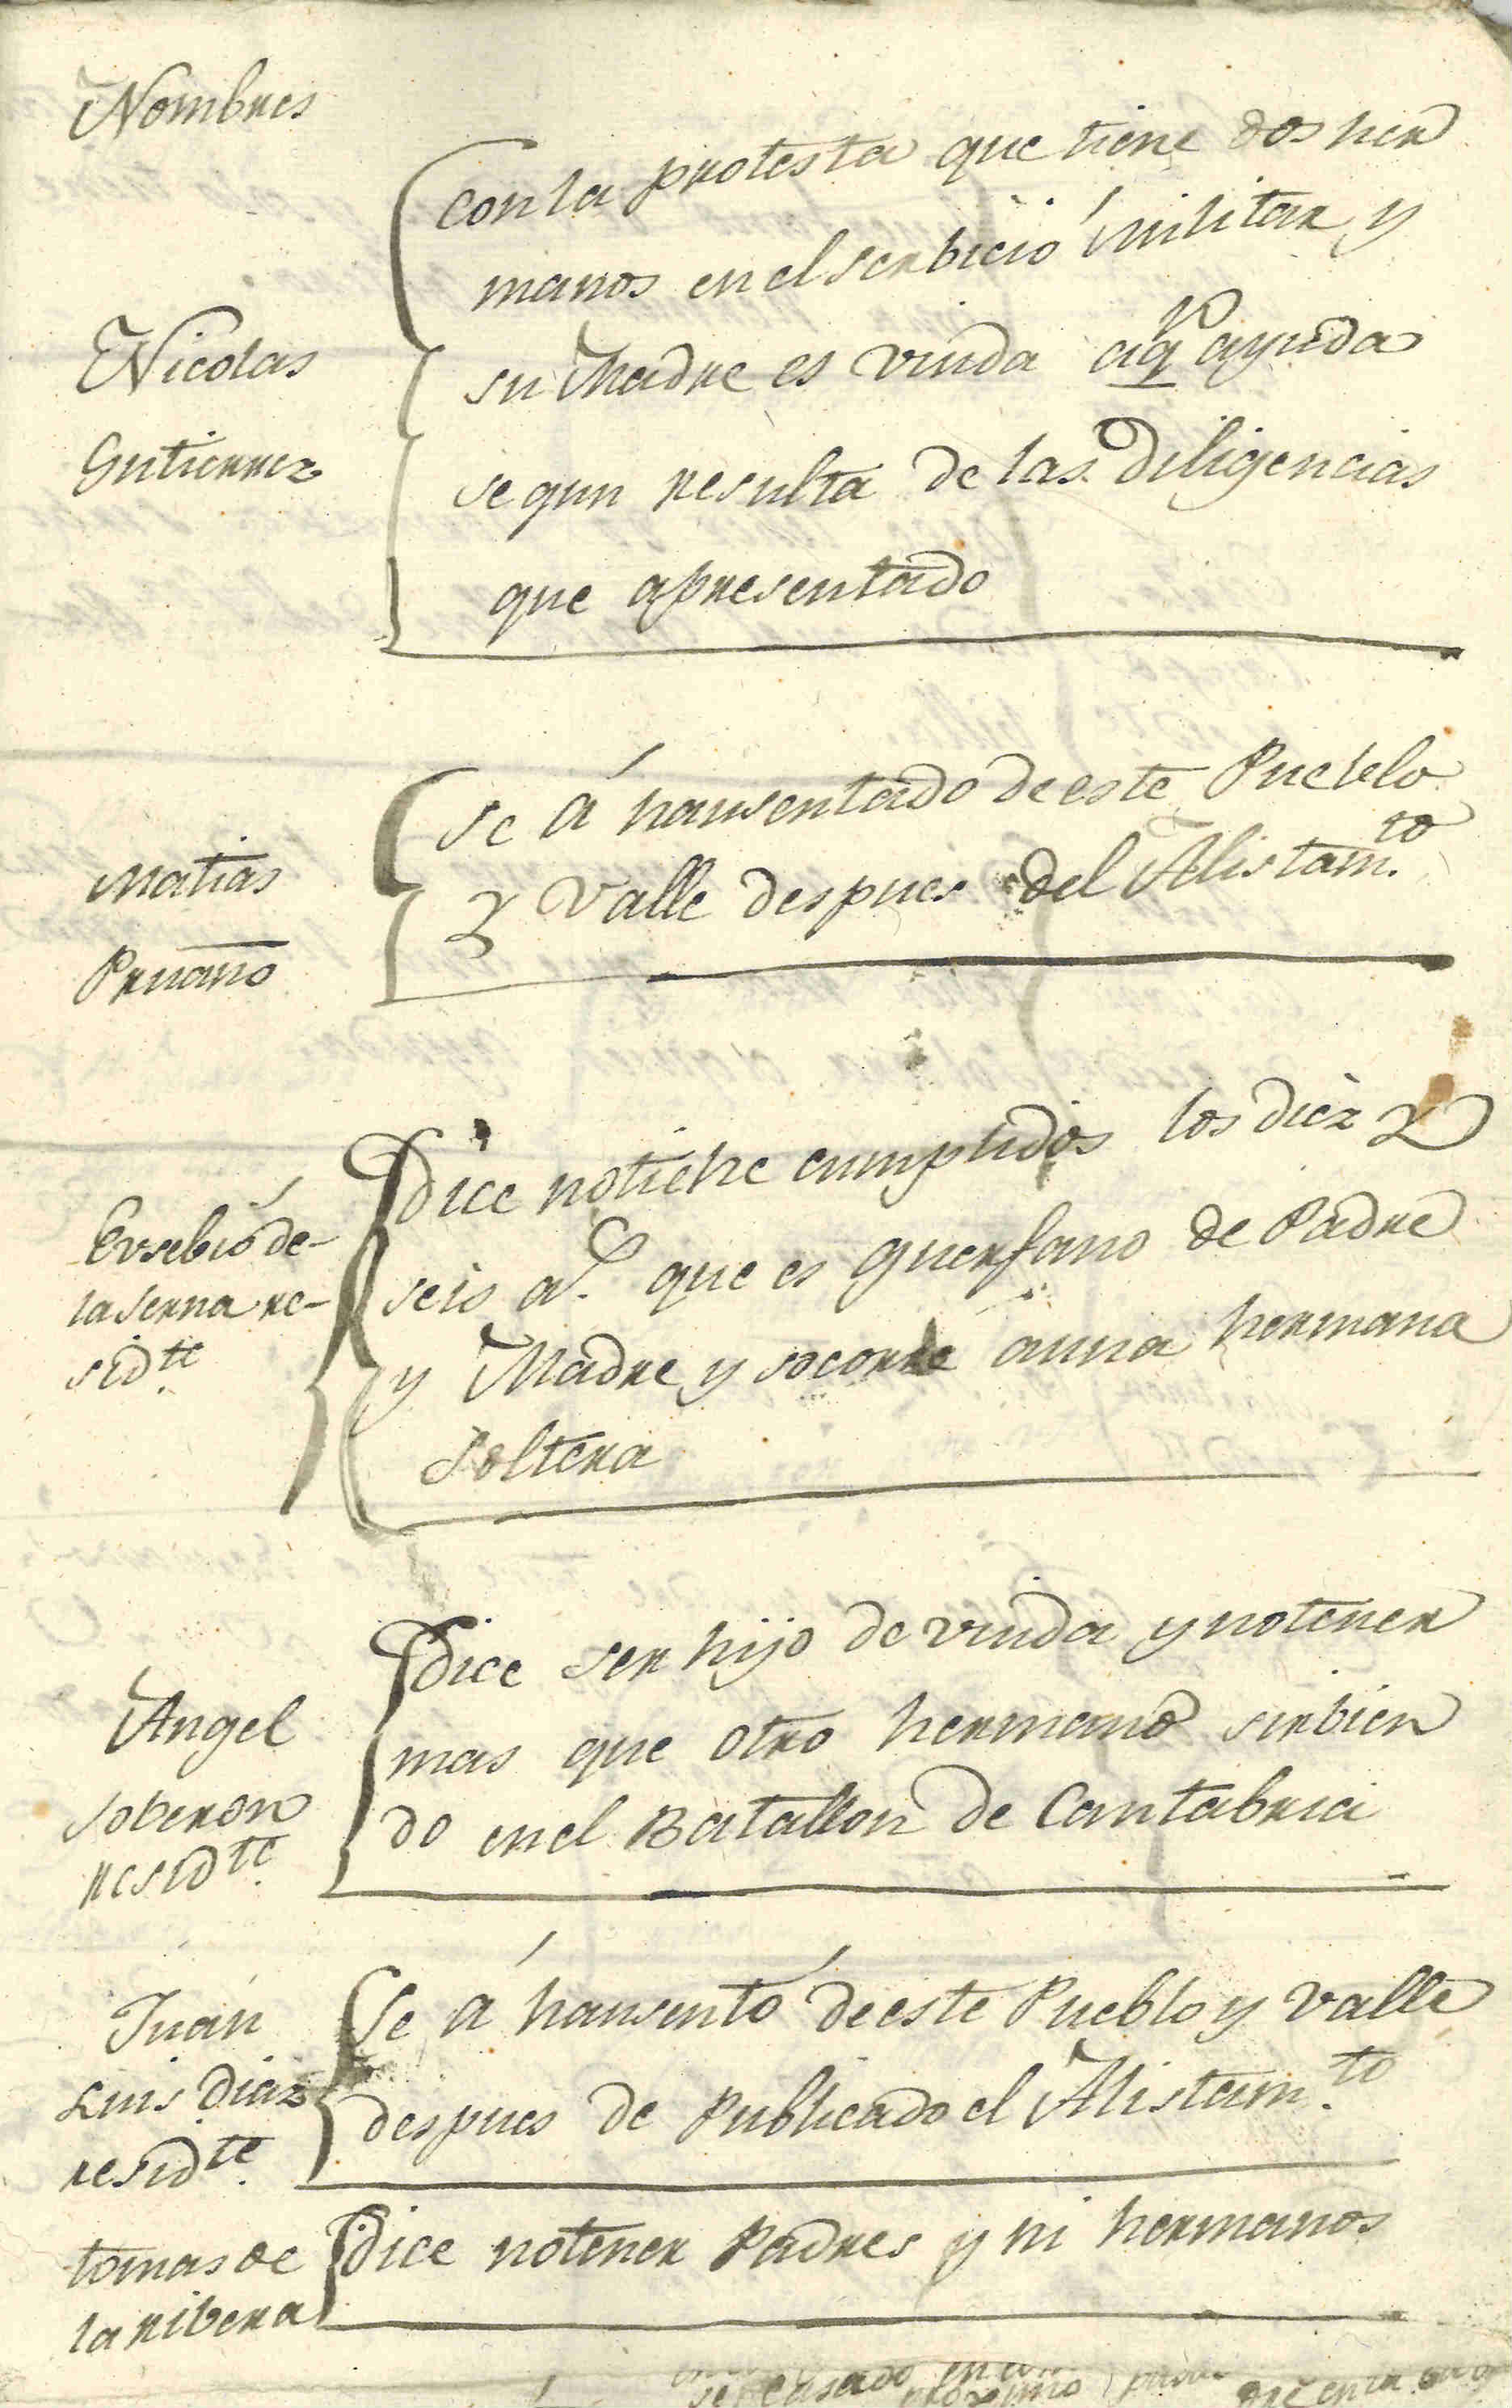 Nombres
Nicolas
Gutierrez
con la protesta que tiene dos her
manos en el serbicio militar y
su Madre es viuda aqn ayuda
segun resulta de las Diligencias
que apresentado
Matias
Pruano
se á hausentado de este Pueblo
Y Valle despues del Alistam.to
Eusebio de-
la serna re-
sid.te
Dice no tiene cumplidos los diez Y
seis a.s que es guerfano de Padre
y Madre y socorre a una hermana
soltera
Angel
soberon
resid.te
Dice ser hijo de viuda y no tener
mas que otro hermano sirbien
do en el Batallon de Cantabria
Juan
Luis Diaz
resid.te
Se á hausentó de este Pueblo y Valle
despues de Publicado el Alistam.to
tomas de
la ribera
Dice no tener Padres y ni hermanos